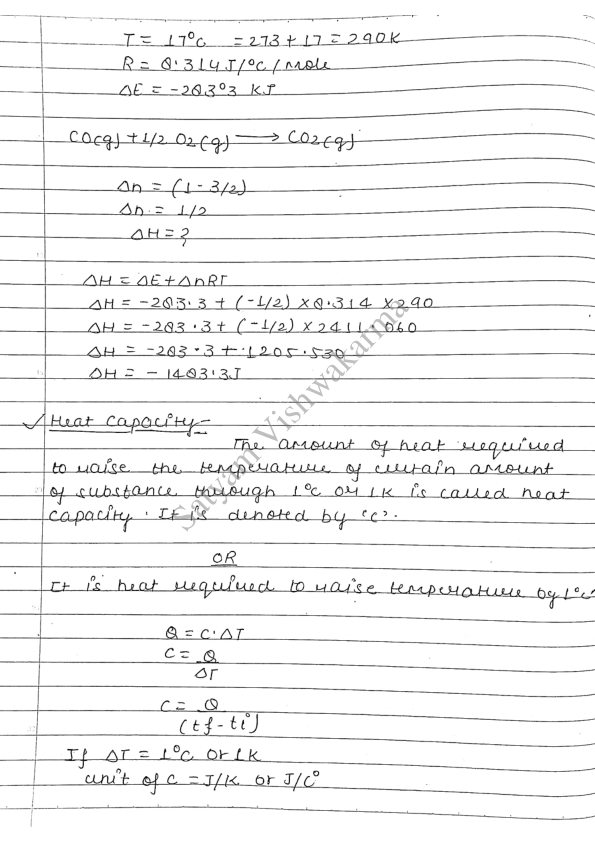 T = 17°C = 273 + 17 = 290K
R = 8.314J/°C/mole
ΔE = -283°3 KJ
CO(g) + 1/2 O2(g) ⟶ CO2(g)
Δn = (1 - 3/2)
Δn = 1/2
ΔH = ?
ΔH = ΔE + ΔnRT
ΔH = -283.3 + (-1/2) × 8.314 × 290
ΔH = -283.3 + (-1/2) × 2411.060
ΔH = -283.3 + .1205.530
ΔH = -1483.3J
✓ Heat Capacity-
The amount of heat required
to raise the temperature of certain amount
of substance through 1°C or 1K is called heat
capacity. It is denoted by 'C'.
OR
It is heat required to raise temperature by 1°C
Q = C.ΔT
C = Q
ΔT
C = Q
(tf - ti)
If ΔT = 1°C or 1K
unit of C = J/K or J/C°
Satyam Vishwakarma